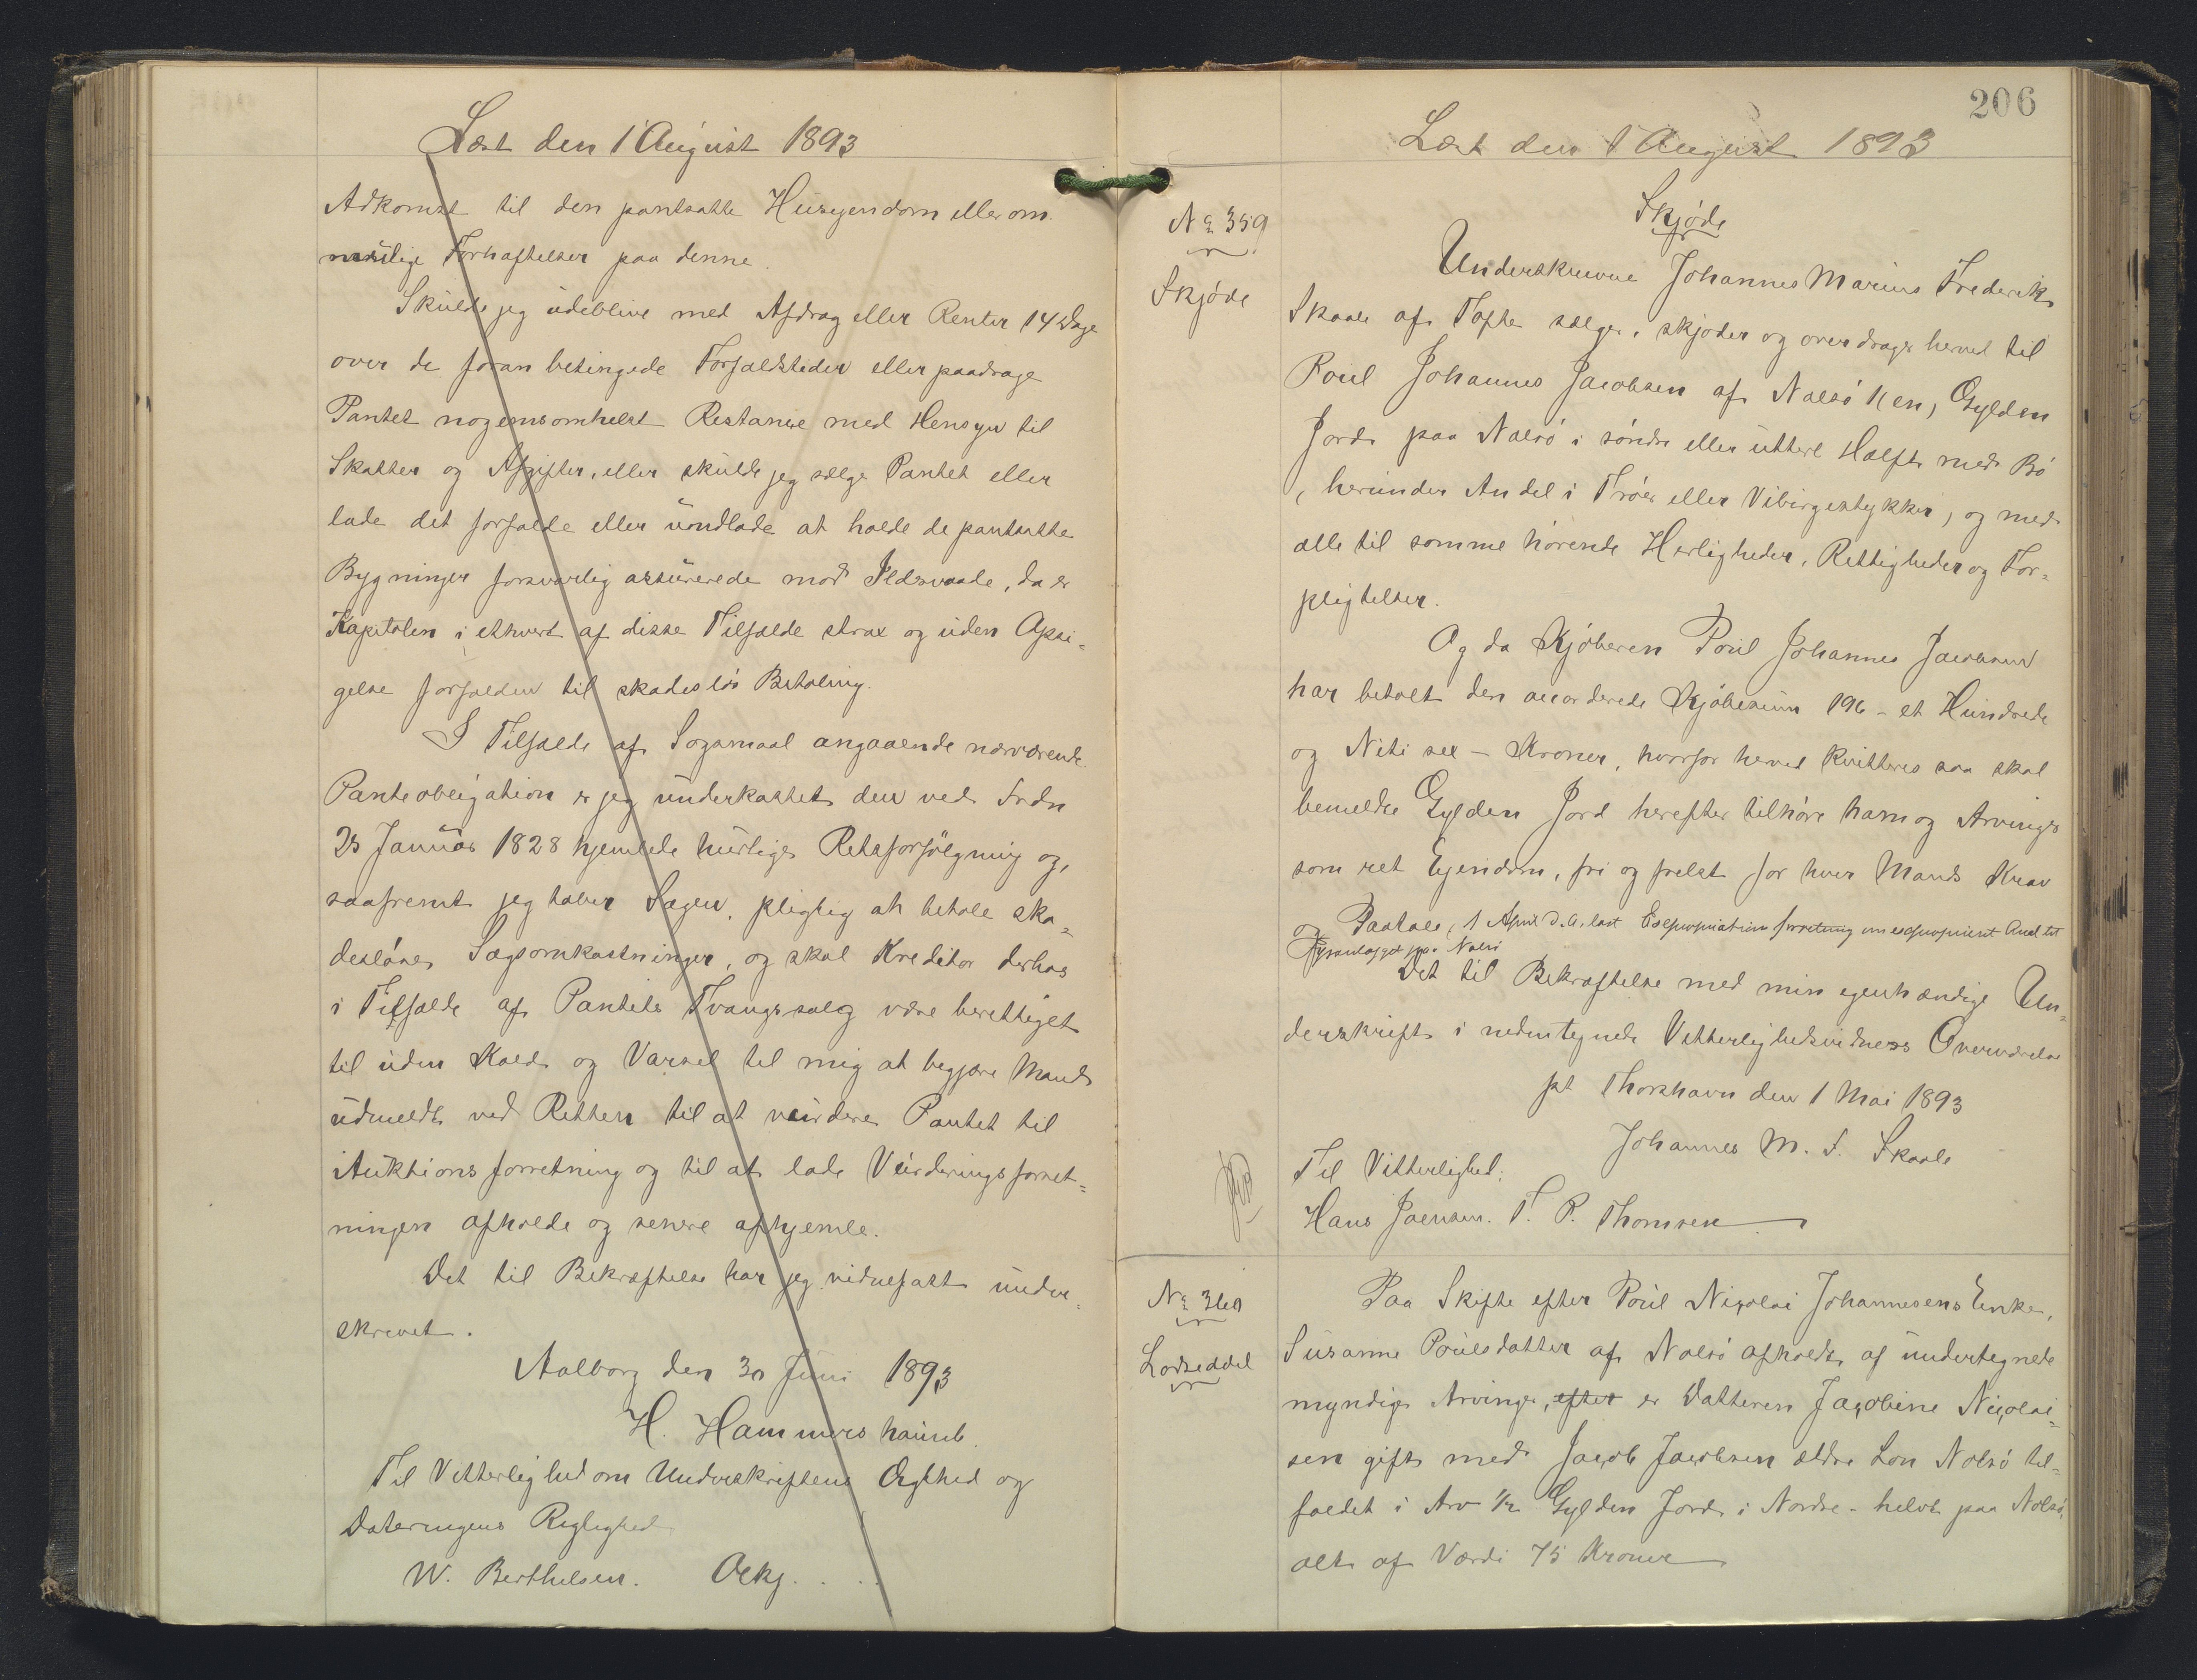 Læst den 1 August 1893
Adkomst til den pantsatte Huseyendom eller om
mulige Forhæftelser paa denne.
Skulde jeg udeblive med Afdrag eller Renter 14 Dage
over de foran betingede Forfaldstider eller paadrage
Pantet nogensomhelst Restance med Hensyn til
Skatter og Afgifter, eller skulde jeg sælge Pantet eller
lade det forfalde eller undlade at holde de pantsatte
Bygninger forsvarlig assurerede mod Ildsvaade, da er
Kapitalen i ethvert af disse Tilfælde strax og uden Opsi-
gelse forfalden til skadesløs Betaling.
I Tilfælde af Sogsmaal angaaende nærværende
Panteobligation er jeg underkastet den ved Frdn
25 Januar 1828 hjemlede hurtige Retsforfølgning og,
saafremt jeg taber Sagen, pligtig at betale ska-
desløse Sagsomkostninger, og skal Kreditor derhos
i Tilfælde af Pantets Tvangssalg være berettiget
til uden Kald og Varsel til mig at begjære Mænd
udmeldt ved Retten til at vurdere Pantet til
Auktionsforretning og til at lade Vurderingsforret-
ningen afholde og senere afhjemle.
Det til Bekræftelse har jeg vidnefast under-
skrevet.
Aalborg den 30 Juni 1893
H. Hammershaimb.
Til Vitterlighed om Underskriftens Ægthed og
Dateringens Rigtighed
W. Berthelsen. Oekj. . . .
206
Læst den 1 August 1893
No 359
Skjøde
Skjøde
Underskrevne Johannes Marius Frederik
Skaale af Tofte sælger, skjøder og overdrager herved til
Poul Johannes Jacobsen af Nolsø 1 (en) Gylden
Jord paa Nolsø i søndre eller uttere Hælft med Bø
(herunder Andel i Trøer eller Vibirgestykker) og med
alle til somme hørende Herligheder, Rettigheder og For-
pligtelser.
Og da Kjøberen Poul Johannes Jacobsen
har betalt den accorderede Kjøbesum 196 - et Hundrede
og Niti sex - Kroner, hvorfor herved kvitteres saa skal
bemeldte Gylden Jord herefter tilhøre ham og Arvinger
som ret Ejendom, fri og frelst for hver Mands Krav
og Paatale, 1 April d. A. læst Expropriationsforretning om exproprieret Areal til
Fyranlægget paa Nolsø
Det til Bekræftelse med min egenhændige Un-
derskrift i nedentegnede Vitterlighedsvidners Overværelse
pt Thorshavn den 1 Mai 1893
Johannes M. F. Skaale
Til Vitterlighed:
Hans Joensen. T. P. Thomsen
No 360
Lodseddel
Paa Skifte efter Poul Nicolai Johannesens Enke,
Susanne Poulsdatter af Nolsø afholdt af undertegnede
myndige Arvinger, efter er Datteren Jacobine Nicolai-
sen gift med Jacob Jacobsen ældre Lon Nolsø til-
faldet i Arv 1/2 Gylden Jord i Nordre-helvt paa Nolsø,
alt af Værdi 75 Kroner